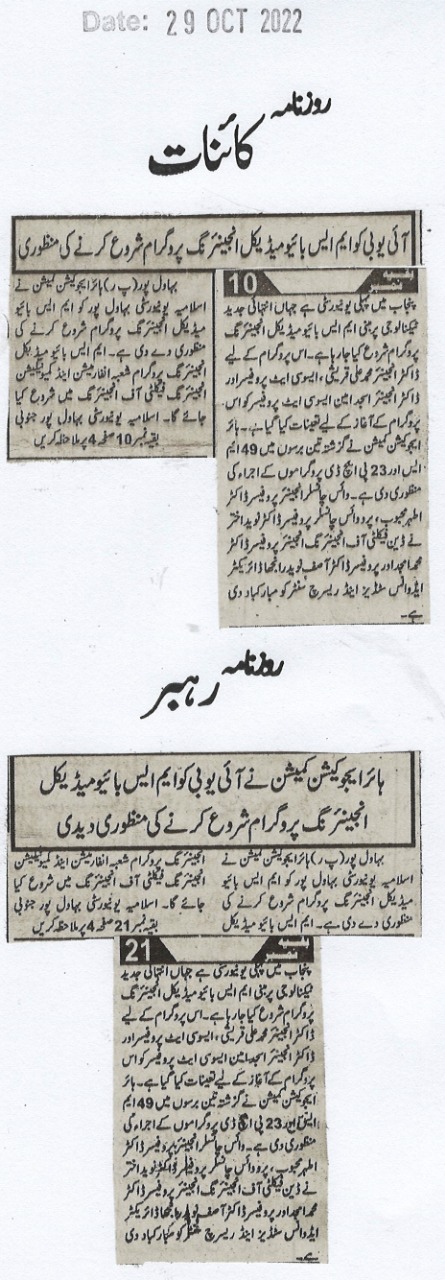 Date: 29 OCT 2022
روزنامہ
کائنات
آئی یو بی کو ایم ایس بائیو میڈیکل انجینئرنگ پروگرام شروع کرنے کی منظوری
بہاول پور (پ ر) ہائر ایجوکیشن کمیشن نے
اسلامیہ یونیورسٹی بہاول پور کو ایم ایس بائیو
میڈیکل انجینئرنگ پروگرام شروع کرنے کی
منظوری دے دی ہے۔ ایم ایس بائیو میڈیکل
انجینئرنگ پروگرام شعبہ انفارمیشن اینڈ کمیونیکیشن
انجینئرنگ فیکلٹی آف انجینئرنگ میں شروع کیا
جائے گا۔ اسلامیہ یونیورسٹی بہاول پور جنوبی
بقیہ نمبر 10 صفحہ 4 پر ملاحظہ کریں
بقیہ نمبر 10
پنجاب میں پہلی یونیورسٹی ہے جہاں انتہائی جدید
ٹیکنالوجی پر مبنی ایم ایس بائیو میڈیکل انجینئرنگ
پروگرام شروع کیا جا رہا ہے۔ اس پروگرام کے لیے
ڈاکٹر انجینئر محمد علی قریشی، ایسوسی ایٹ پروفیسر اور
ڈاکٹر انجینئر اسجد امین ایسوسی ایٹ پروفیسر کو اس
پروگرام کے آغاز کے لیے تعینات کیا گیا ہے۔ ہائر
ایجوکیشن کمیشن نے گزشتہ تین برسوں میں 49 ایم
ایس اور 23 پی ایچ ڈی پروگراموں کے اجراء کی
منظوری دی ہے۔ وائس چانسلر انجینئر پروفیسر ڈاکٹر
اطہر محبوب، پرو وائس چانسلر پروفیسر ڈاکٹر نوید اختر
نے ڈین فیکلٹی آف انجینئرنگ انجینئر پروفیسر ڈاکٹر
محمد امجد اور پروفیسر ڈاکٹر آصف نوید رانجھا ڈائریکٹر
ایڈوانس سٹڈیز اینڈ ریسرچ سنٹر کو مبارکباد دی
ہے۔
روزنامہ
رہبر
ہائر ایجوکیشن کمیشن نے آئی یو بی کو ایم ایس بائیو میڈیکل
انجینئرنگ پروگرام شروع کرنے کی منظوری دیدی
بہاول پور (پ ر) ہائر ایجوکیشن کمیشن نے
اسلامیہ یونیورسٹی بہاول پور کو ایم ایس بائیو
میڈیکل انجینئرنگ پروگرام شروع کرنے کی
منظوری دے دی ہے۔ ایم ایس بائیو میڈیکل
انجینئرنگ پروگرام شعبہ انفارمیشن اینڈ کمیونیکیشن
انجینئرنگ فیکلٹی آف انجینئرنگ میں شروع کیا
جائے گا۔ اسلامیہ یونیورسٹی بہاول پور جنوبی
بقیہ نمبر 21 صفحہ 4 پر ملاحظہ کریں
بقیہ نمبر 21
پنجاب میں پہلی یونیورسٹی ہے جہاں انتہائی جدید
ٹیکنالوجی پر مبنی ایم ایس بائیو میڈیکل انجینئرنگ
پروگرام شروع کیا جا رہا ہے۔ اس پروگرام کے لیے
ڈاکٹر انجینئر محمد علی قریشی، ایسوسی ایٹ پروفیسر اور
ڈاکٹر انجینئر اسجد امین ایسوسی ایٹ پروفیسر کو اس
پروگرام کے آغاز کے لیے تعینات کیا گیا ہے۔ ہائر
ایجوکیشن کمیشن نے گزشتہ تین برسوں میں 49 ایم
ایس اور 23 پی ایچ ڈی پروگراموں کے اجراء کی
منظوری دی ہے۔ وائس چانسلر انجینئر پروفیسر ڈاکٹر
اطہر محبوب، پرو وائس چانسلر پروفیسر ڈاکٹر نوید اختر
نے ڈین فیکلٹی آف انجینئرنگ انجینئر پروفیسر ڈاکٹر
محمد امجد اور پروفیسر ڈاکٹر آصف نوید رانجھا ڈائریکٹر
ایڈوانس سٹڈیز اینڈ ریسرچ سنٹر کو مبارکباد دی
ہے۔